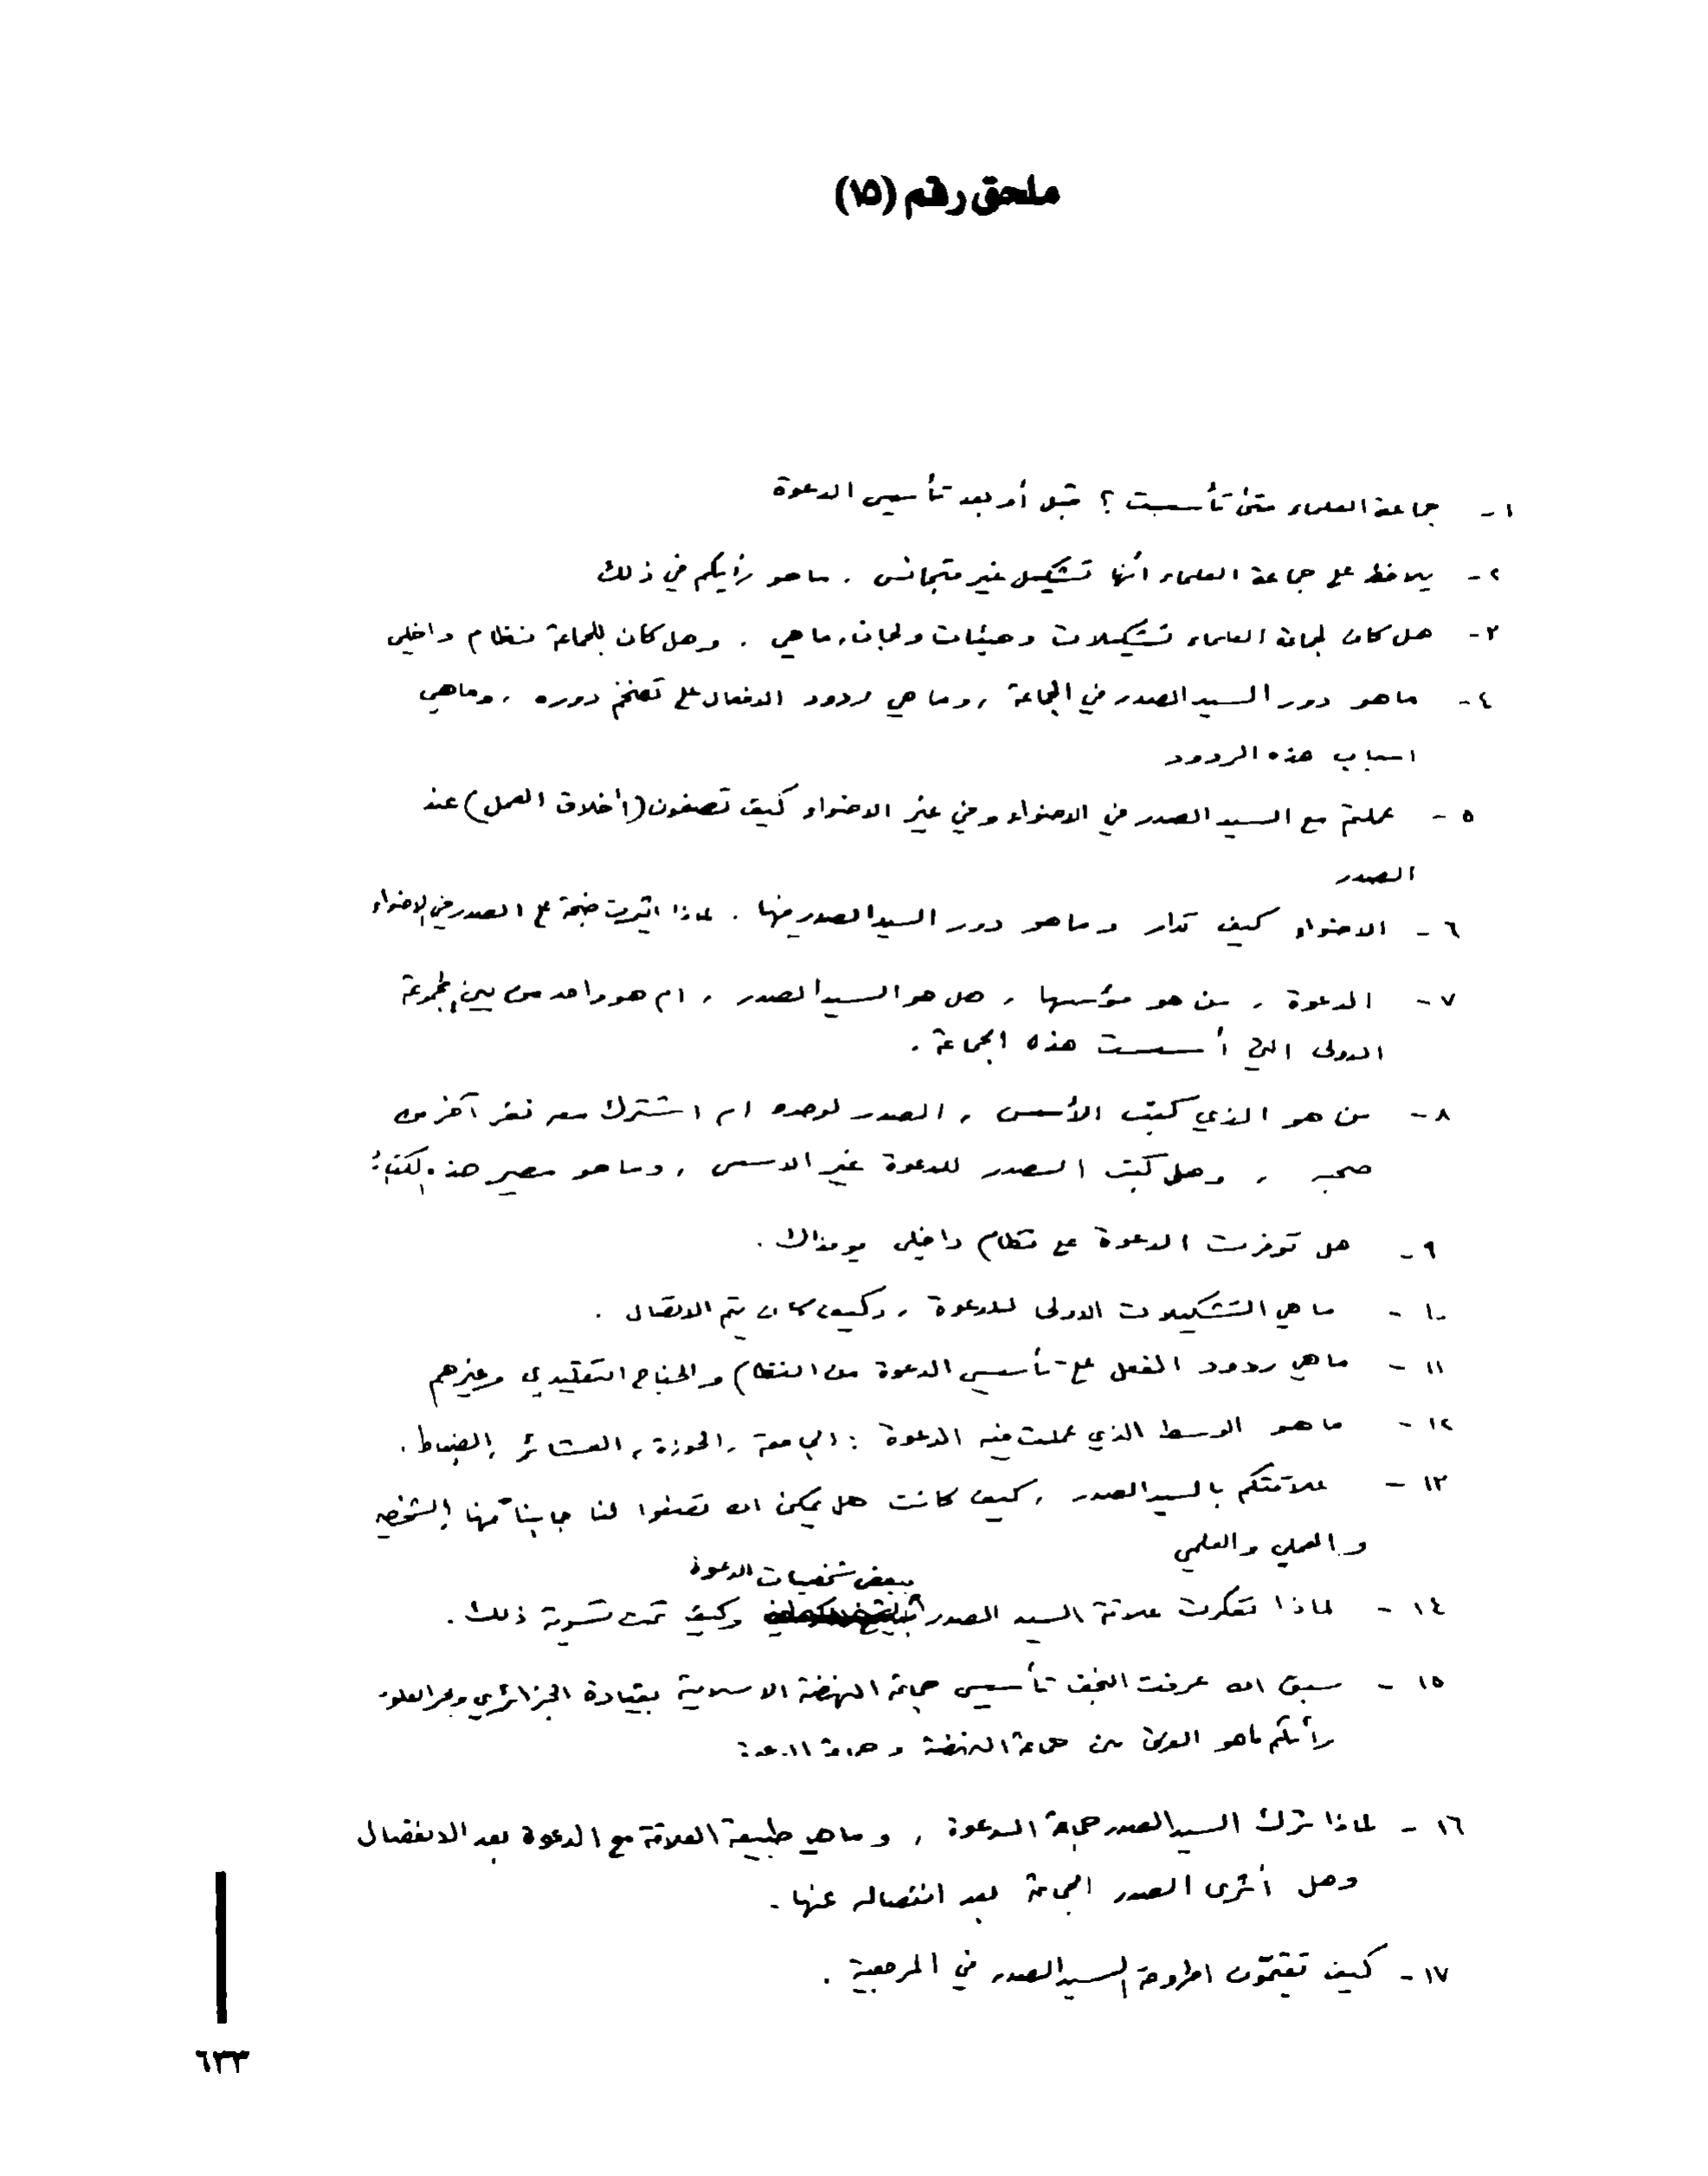 ملحق رقم (١٥)
١- جماعة العلماء متى تأسست ؟ قبل أو بعد تأسيس الدعوة
٢- يلاحظ على جماعة العلماء أنها تشكيل غير متجانس . ما هو رأيكم في ذلك
٣- هل كان لجماعة العلماء تشكيلات وهيئات ولجان، ما هي . وهل كان للجماعة نظام داخلي
٤- ما هو دور السيد الصدر في الجماعة ، وما هي ردود الافعال على تضخم دوره ، وماهي
اسباب هذه الردود
٥- عملتم مع السيد الصدر في الاضواء وفي غير الاضواء كيف تصفون (أخلاق العمل) عند
الصدر
٦- الاضواء كيف تدار وما هو دور السيد الصدر فيها . لماذا اثيرت ضجة على الصدر في الاضواء
٧- الدعوة ، من هو مؤسسها ، هل هو السيد الصدر ، ام هو واحد من بين المجموعة
الاولى التي أسست هذه الجماعة .
٨- من هو الذي كتب الأسس ، الصدر لوحده ام اشترك معه نفر آخر من
صحبه ، وهل كتب الصدر للدعوة غير الاسس ، وما هو مصير هذه
٩- هل توفرت الدعوة على نظام داخلي يومذاك .
١٠- ما هي التشكيلات الاولى للدعوة ، وكيف كان يتم الاتصال .
١١- ما هي ردود الفعل على تأسيس الدعوة من النظام والجناح التقليدي وغيرهم
١٢- ما هو الوسط الذي عملت فيه الدعوة : الجامعة ، الحوزة ، العشائر ، الضباط .
١٣- علاقتكم بالسيد الصدر ، كيف كانت هل يمكن ان تصفوا لنا جانباً منها الشخصي
والعملي والعلمي
بعض شخصيات الدعوة
١٤- لماذا تعكرت علاقة السيد الصدر وكيف تمت تسوية ذلك .
١٥- سبق ان عرفت النجف تأسيس جماعة النهضة الاسلامية بقيادة الجزائري وبحر العلوم
رأيكم ما هو الفرق بين جماعة النهضة وجماعة الدعوة
١٦- لماذا ترك السيد الصدر جماعة الدعوة ، وما هي طبيعة العلاقة مع الدعوة بعد الانفصال
وهل أثرى الصدر الجماعة بعد انفصاله عنها .
١٧- كيف تقيمّون اطروحة السيد الصدر في المرجعية .
٦٣٣